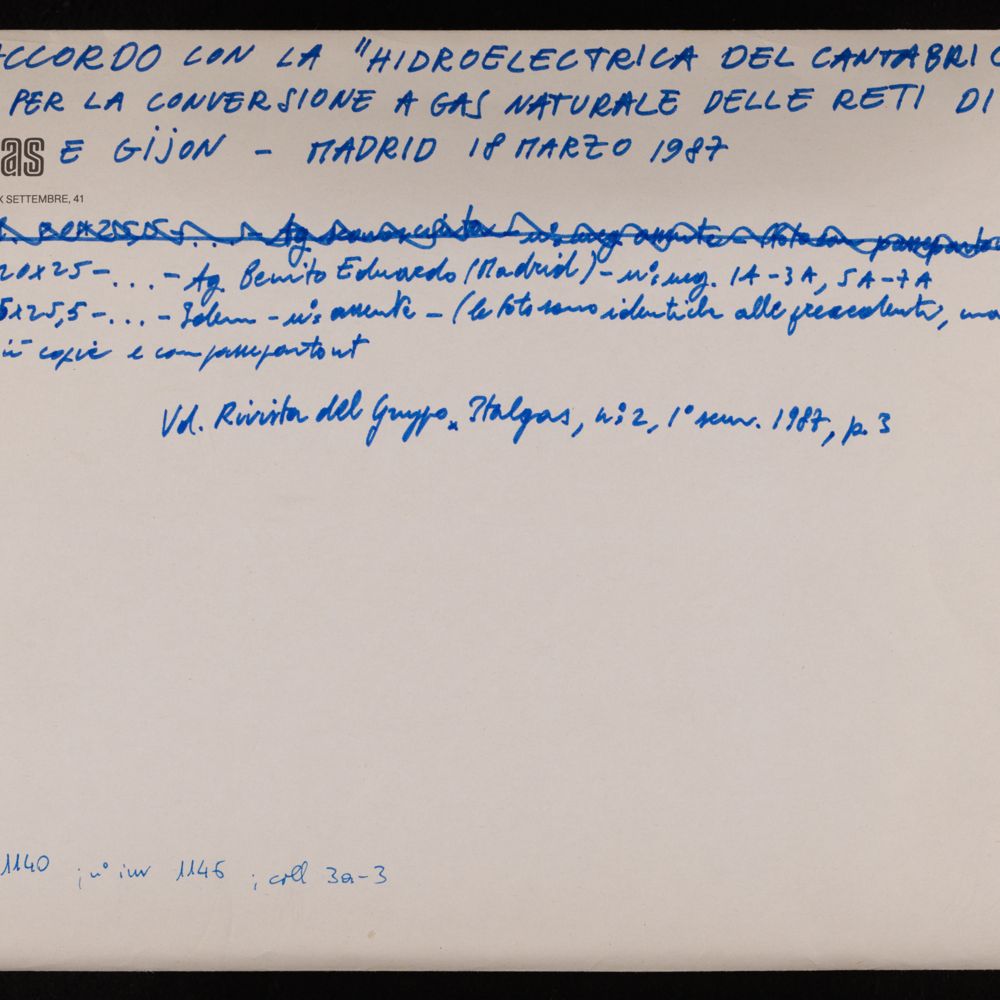 ACCORDO CON LA "HIDROELECTRICA DEL CANTABRIC
PER LA CONVERSIONE A GAS NATURALE DELLE RETI DI
as E GIJON - MADRID 18 MARZO 1987
X SETTEMBRE, 41
20x25 - ... - Ag. Benito Eduardo (Madrid) - n°: neg. 1A-3A, 5A-7A
5x25,5 - ... - Idem - n°: assente - (le foto sono identiche alle precedenti, ma
in copie e con passepartout
Vd. Rivista del Gruppo Italgas, n°: 2, 1° sem. 1987, p. 3
1140 ; n° inv 1146 ; coll 3a-3